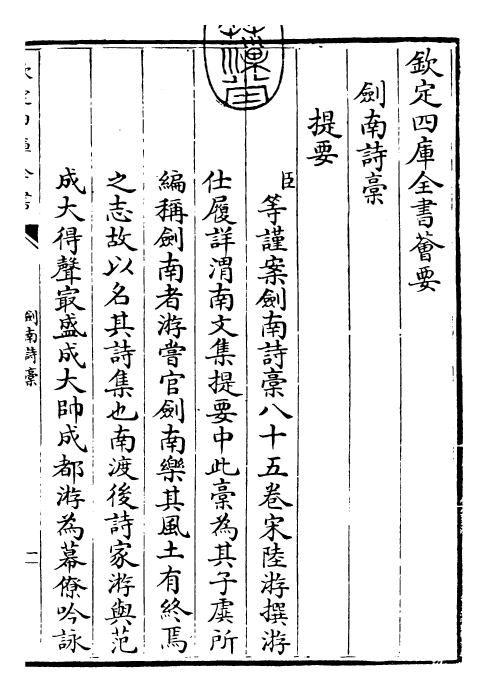 欽定四庫全書薈要
劍南詩稾
提要
臣等謹案劍南詩稾八十五卷宋陸游撰游
仕履詳渭南文集提要中此稾為其子虡所
編稱劍南者游嘗官劍南樂其風土有終焉
之志故以名其詩集也南渡後詩家游與范
成大得聲㝡盛成大帥成都游為幕僚吟詠
劍南詩稾